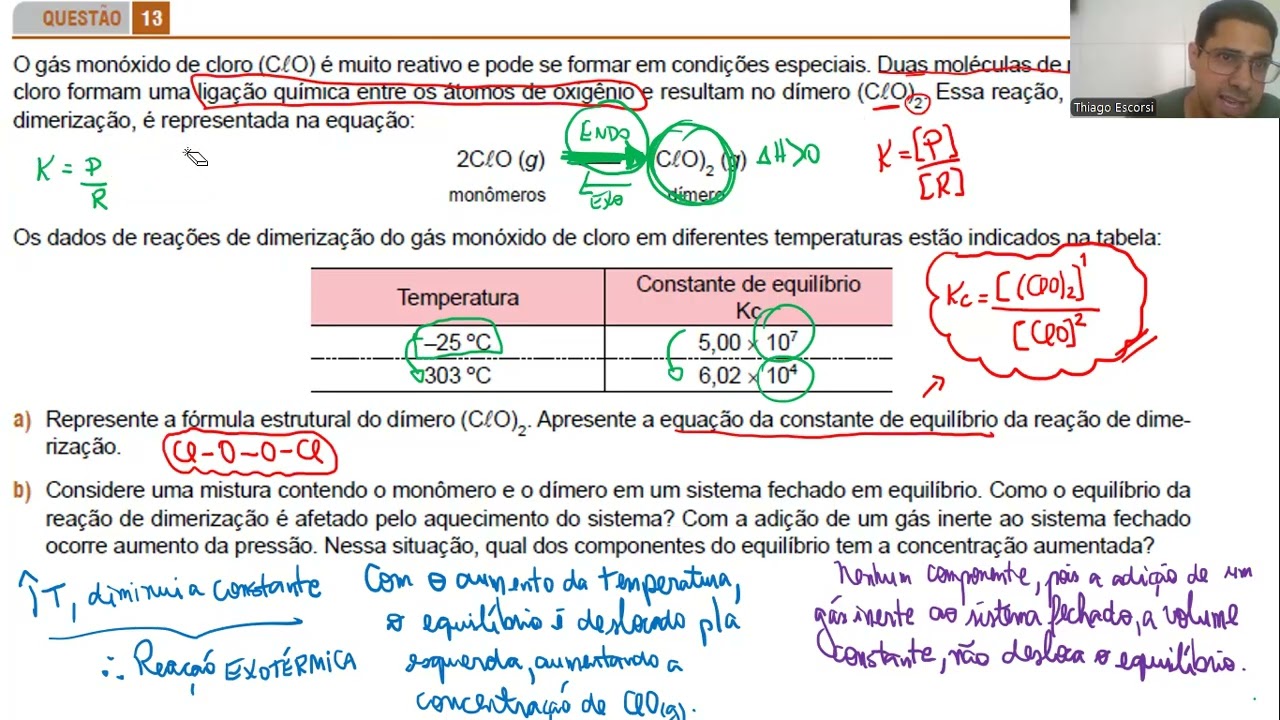 QUESTÃO 13
O gás monóxido de cloro (CℓO) é muito reativo e pode se formar em condições especiais. Duas moléculas de
cloro formam uma ligação química entre os átomos de oxigênio e resultam no dímero (CℓO)2. Essa reação,
dimerização, é representada na equação:
Thiago Escorsi
K = P/R
2CℓO (g) ENDO EXO (CℓO)2 (g) ΔH>0
monômeros dímero
K = [P]/[R]
Os dados de reações de dimerização do gás monóxido de cloro em diferentes temperaturas estão indicados na tabela:
Temperatura
Constante de equilíbrio
Kc
–25 ºC 5,00 × 10⁷
303 ºC 6,02 × 10⁴
Kc = [(ClO)2]¹/[ClO]²
a) Represente a fórmula estrutural do dímero (CℓO)2. Apresente a equação da constante de equilíbrio da reação de dime-
rização.
Cl-O-O-Cl
b) Considere uma mistura contendo o monômero e o dímero em um sistema fechado em equilíbrio. Como o equilíbrio da
reação de dimerização é afetado pelo aquecimento do sistema? Com a adição de um gás inerte ao sistema fechado
ocorre aumento da pressão. Nessa situação, qual dos componentes do equilíbrio tem a concentração aumentada?
↑T, diminui a constante
∴ Reação EXOTÉRMICA
Com o aumento da temperatura,
o equilíbrio é deslocado p/a
esquerda, aumentando a
concentração de ClO(g).
Nenhum componente, pois a adição de um
gás inerte ao sistema fechado, a volume
constante, não desloca o equilíbrio.